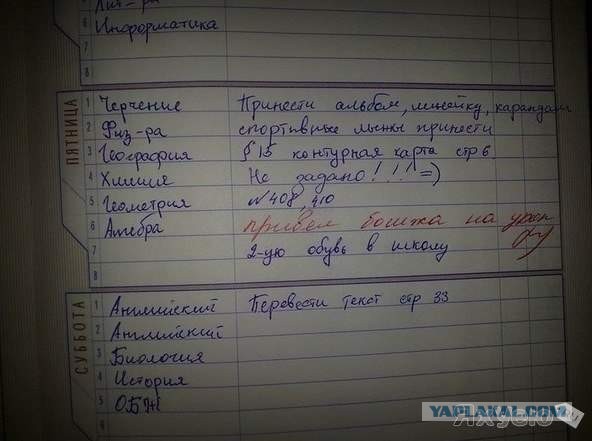 Лит-ра
6 Информатика
7
8
ПЯТНИЦА
1 Черчение Принести альбом, линейку, карандаш
2 Физ-ра спортивные лыжы принести
3 География § 15 контурная карта стр 6.
4 Химия Не задано!!!! =)
5 Геометрия №408, 410
6 Алгебра привел бомжа на урок
7 2-ую обувь в школу
8
СУББОТА
1 Английский Перевести текст стр 33
2 Английский
3 Биология
4 История
5 ОБЖ
6
YAPLAKAL.COM